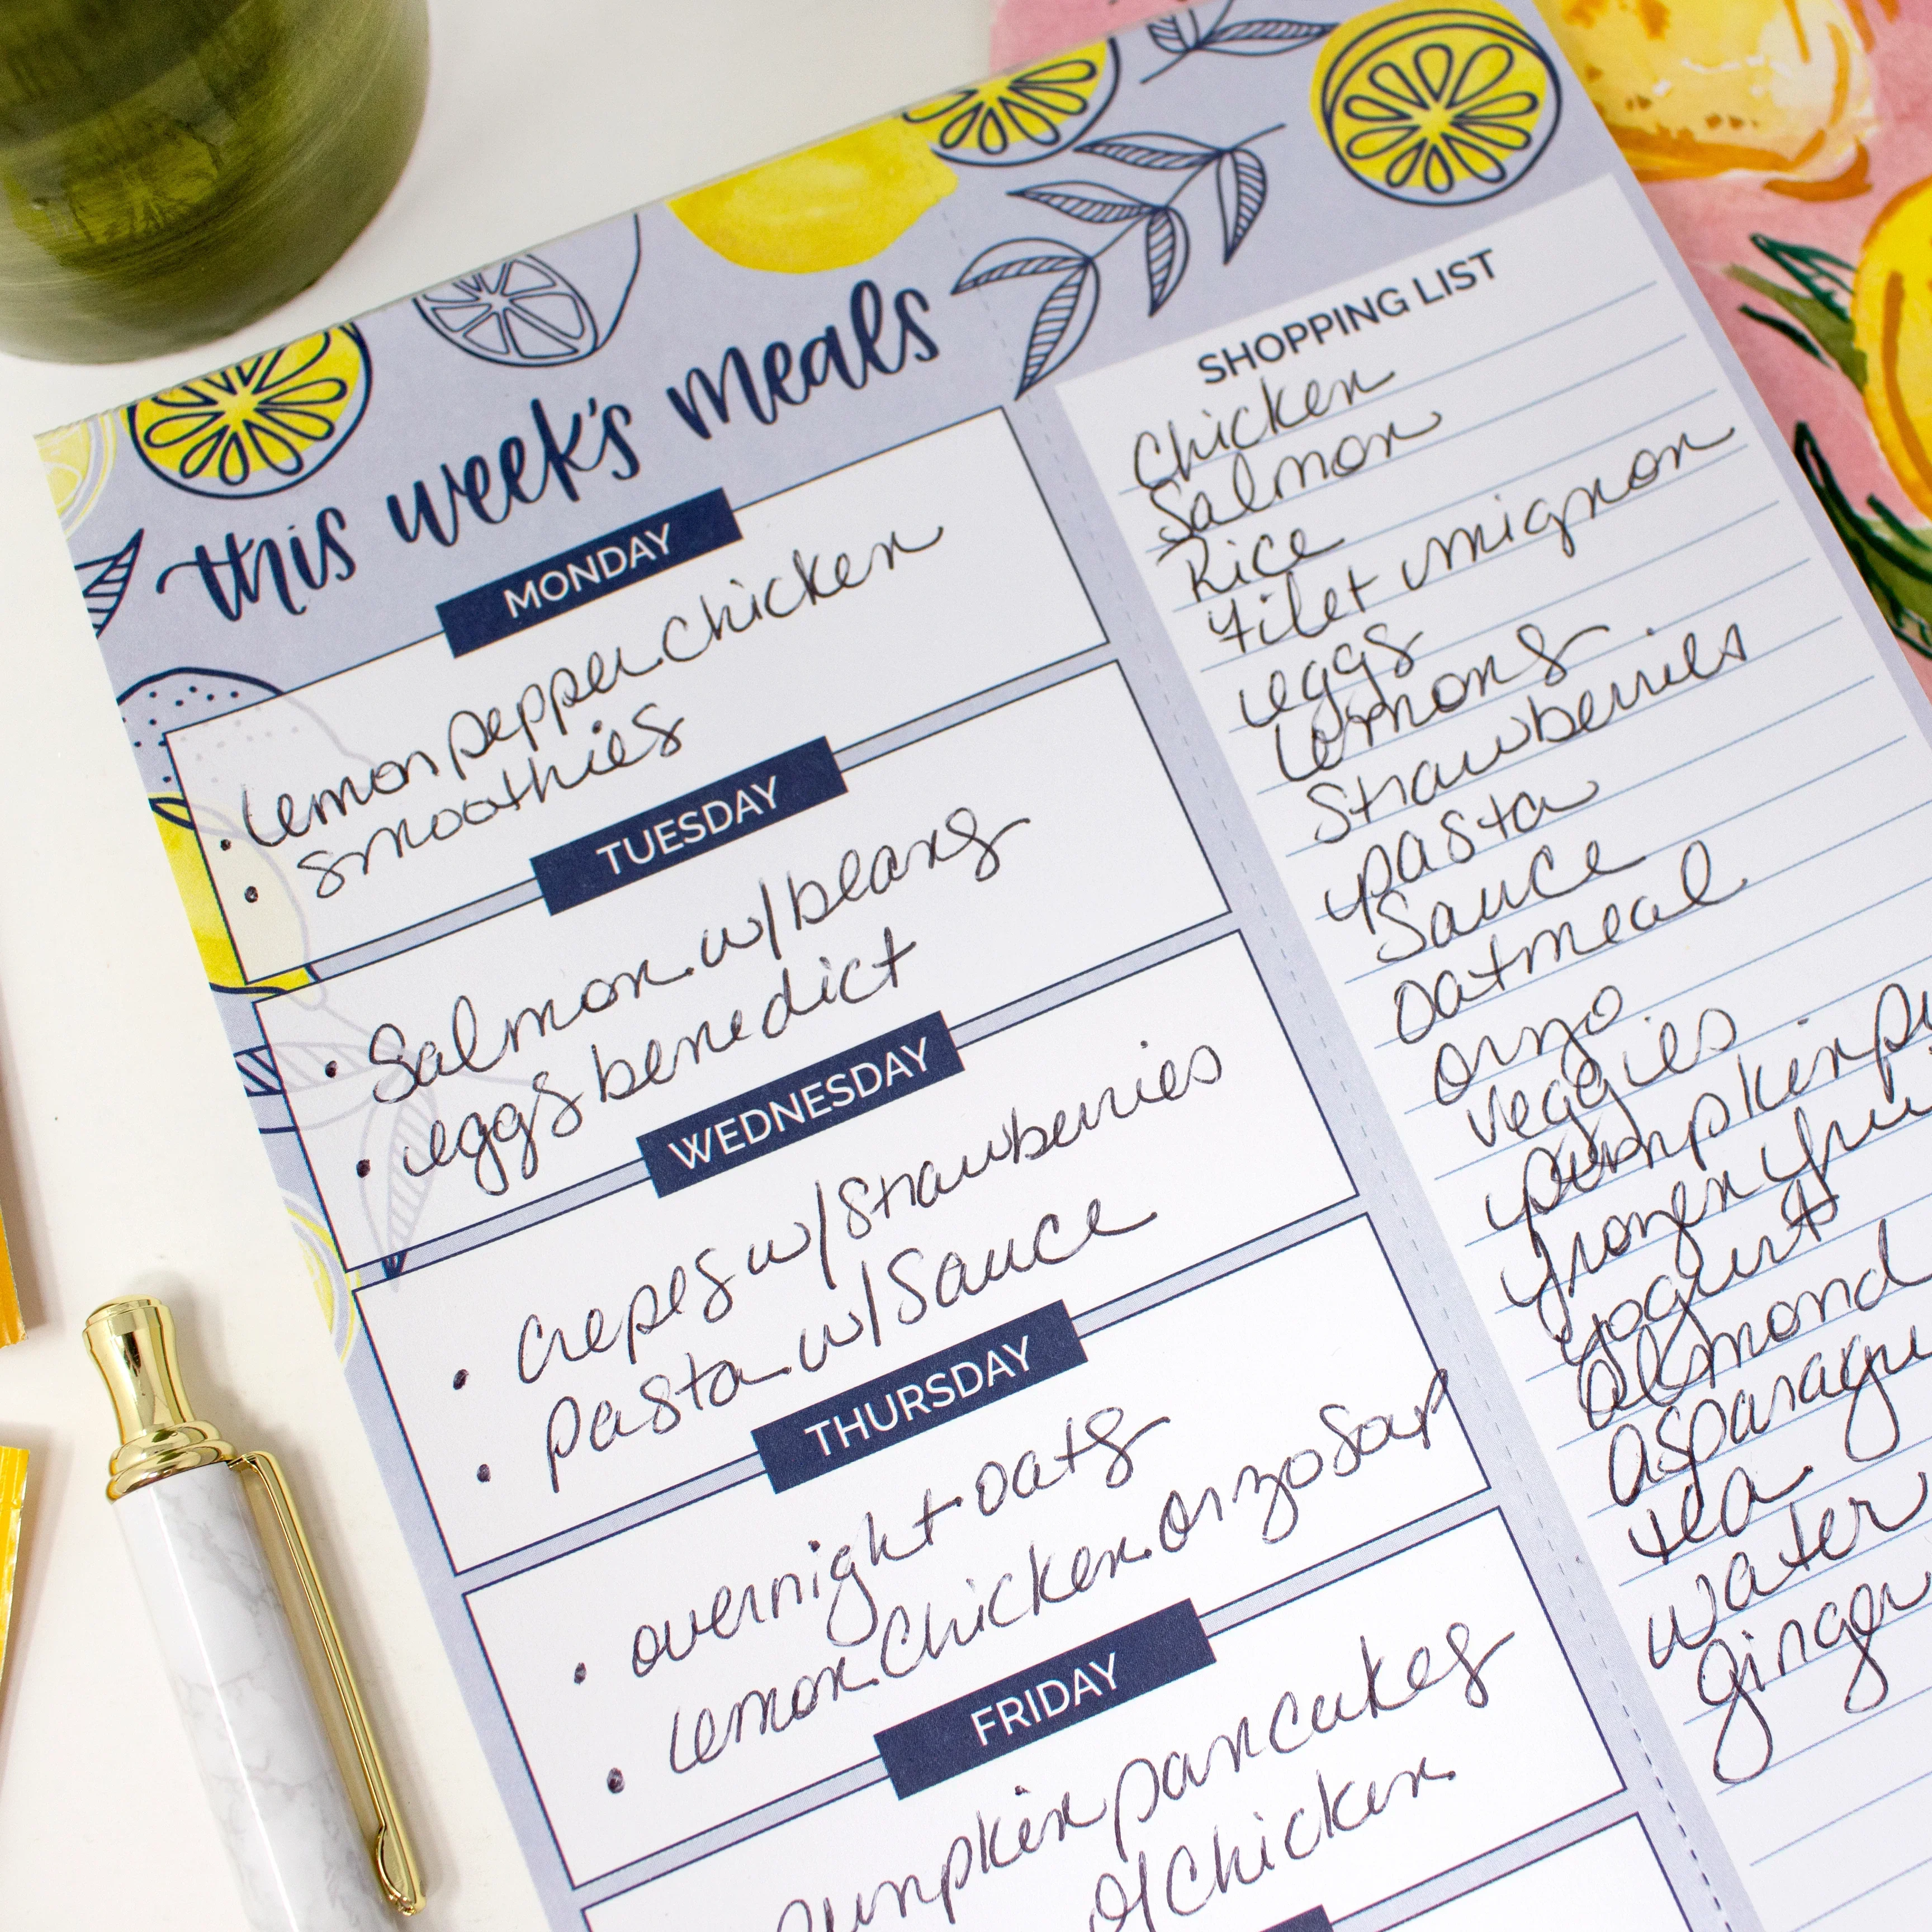 this week's meals
MONDAY
• lemon pepper chicken
• smoothies
TUESDAY
• Salmon w/ beans
• eggs benedict
WEDNESDAY
• crepes w/ strawberries
• pasta w/ sauce
THURSDAY
• overnight oats
• lemon chicken orzo soup
FRIDAY
pumpkin pancakes
chicken
SHOPPING LIST
Chicken
Salmon
Rice
filet mignon
eggs
lemons
Strawberries
pasta
Sauce
oatmeal
orzo
veggies
pumpkin
frozen
yogurt
almond
tea
water
ginger